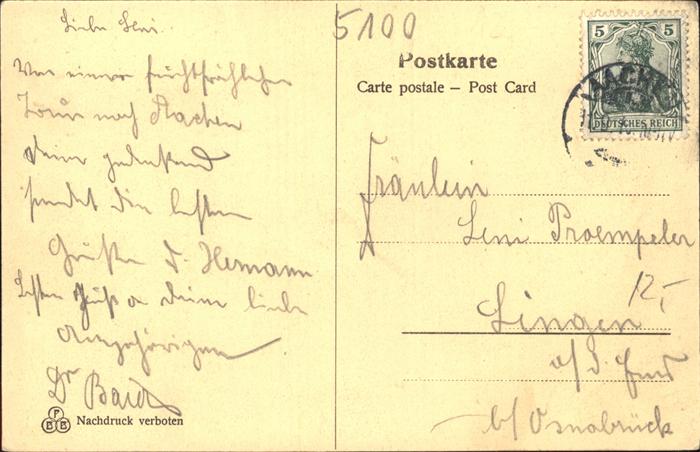 Liebe Leni.
Von einer feuchtfröhlichen
Tour nach Aachen
Deiner gedenkend
sendet die besten
Grüße F. Hermann
Besten Gruß a Deine liebe
Angehörigen
Dr
Nachdruck verboten
5100
Postkarte
Carte postale – Post Card
5 5
AACHEN
DEUTSCHES REICH
Fräulein
Leni Proempeler
12,-
Lingen
a/d. Ems
b/ Osnabrück